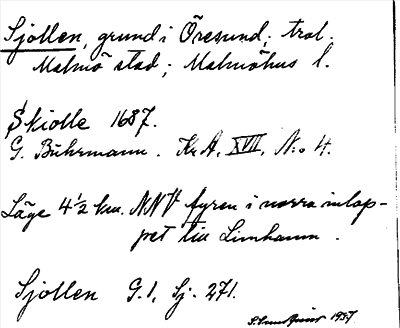 Sjollen, grund i Öresund; trol.
Malmö stad; Malmöhus l.
Skiolle 1687.
G. Buhrmann. Kr A, XVII, No 4.
Läge 4 1/2 km. NNV fyren i norra inlop-
pet till Limhamn.
Sjollen G.1, Sj. 271.
1937